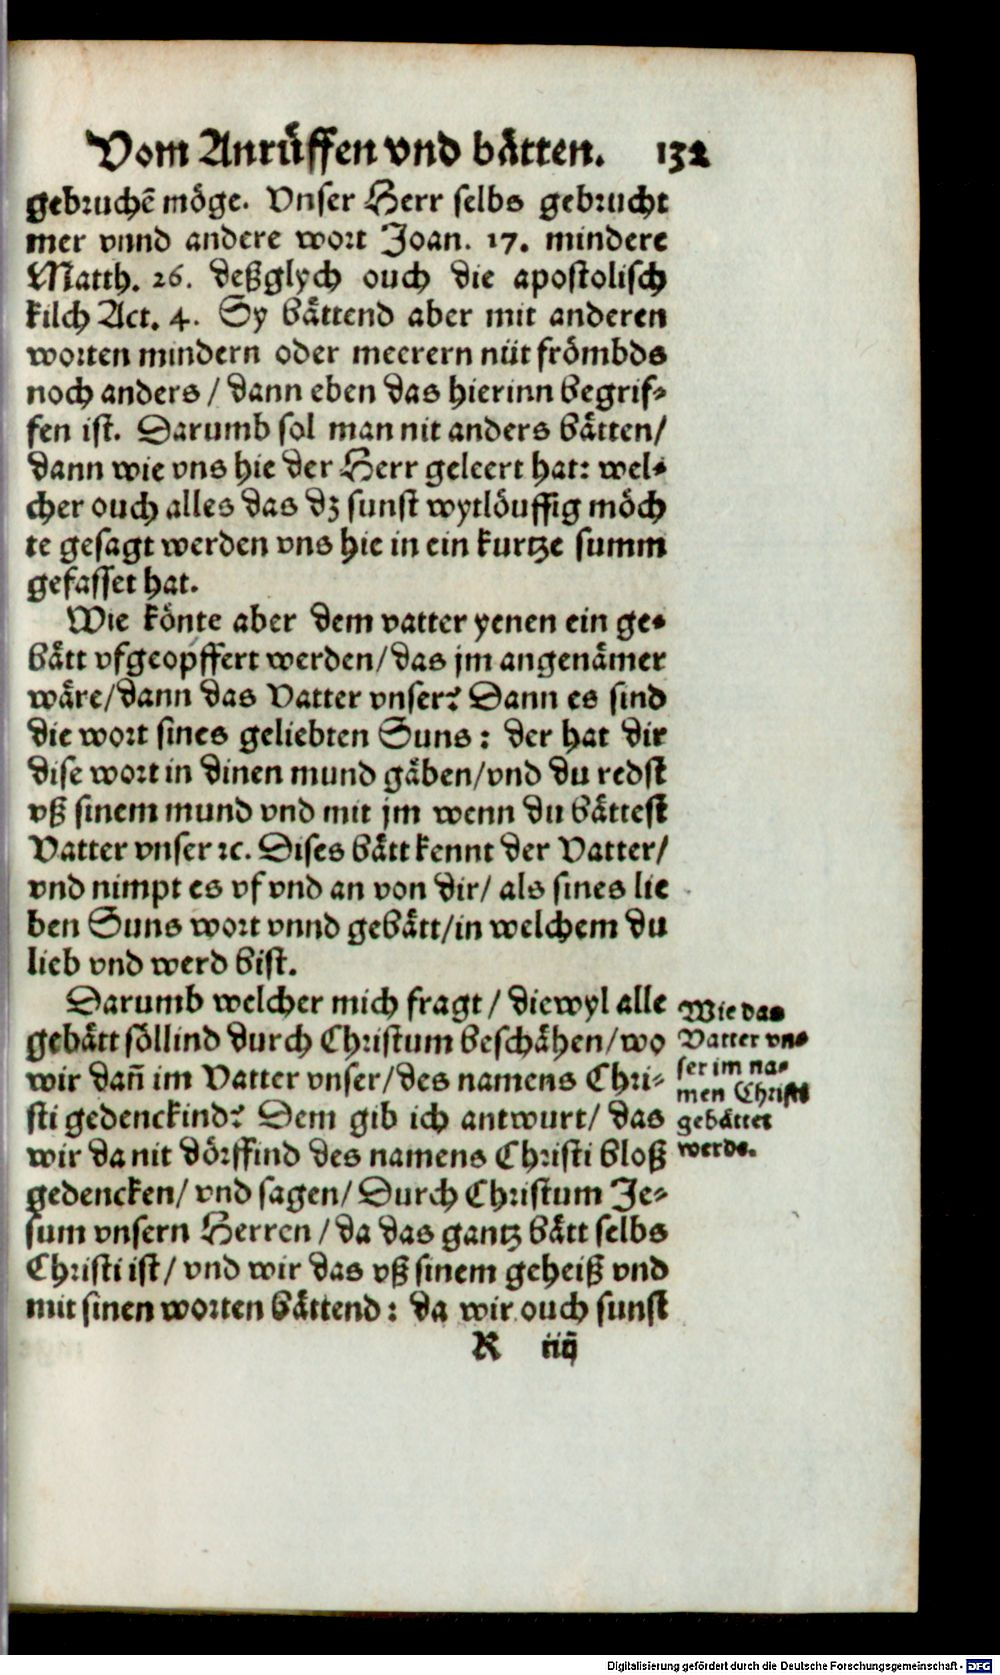 Vom Anrüffen vnd bätten. 132
gebruchē möge. Vnser Herr selbs gebrucht
mer vnnd andere wort Joan. 17. mindere
Matth. 26. deßglych ouch die apostolisch
kilch Act. 4. Sy bättend aber mit anderen
worten mindern oder meerern nüt frömbds
noch anders / dann eben das hierinn begrif⸗
fen ist. Darumb sol man nit anders bätten/
dann wie vns hie der Herr geleert hat: wel⸗
cher ouch alles das dz sunst wytlöuffig möch
te gesagt werden vns hie in ein kurtze summ
gefasset hat.
Wie könte aber dem vatter yenen ein ge⸗
bätt vfgeopffert werden/das jm angenämer
wäre/dann das Vatter vnser? Dann es sind
die wort sines geliebten Suns: der hat dir
dise wort in dinen mund gäben/vnd du redst
vß sinem mund vnd mit jm wenn du bättest
Vatter vnser ꝛc. Dises bätt kennt der Vatter/
vnd nimpt es vf vnd an von dir/ als sines lie
ben Suns wort vnnd gebätt/in welchem du
lieb vnd werd bist.
Darumb welcher mich fragt / diewyl alle
gebätt söllind durch Christum beschähen/wo
wir dañ im Vatter vnser/des namens Chri⸗
sti gedenckind? Dem gib ich antwurt/ das
wir da nit dörffind des namens Christi bloß
gedencken/ vnd sagen/ Durch Christum Je⸗
sum vnsern Herren /da das gantz bätt selbs
Christi ist/ vnd wir das vß sinem geheiß vnd
mit sinen worten bättend: da wir ouch sunst
Wie das
Vatter vn⸗
ser im na⸗
men Christi
gebättet
werde.
R iiij
Digitalisierung gefördert durch die Deutsche Forschungsgemeinschaft - DFG